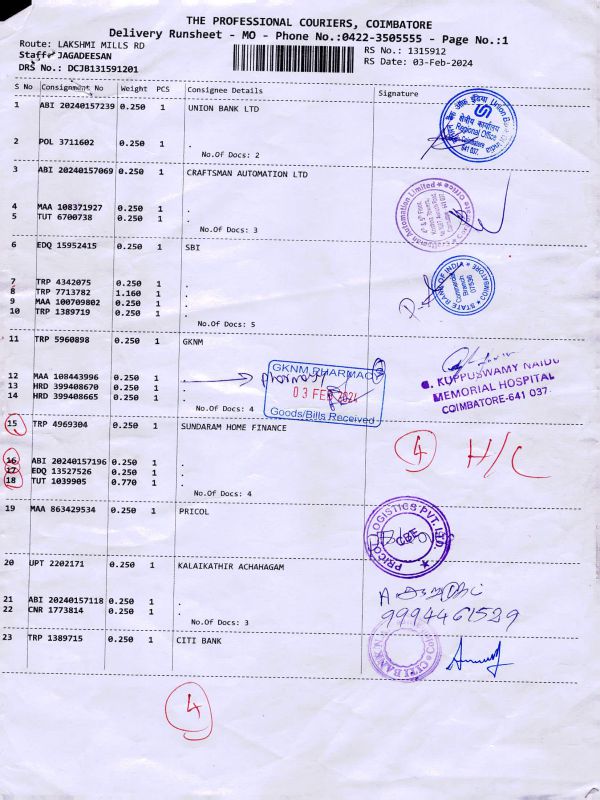 THE PROFESSIONAL COURIERS, COIMBATORE
Delivery Runsheet - MO - Phone No.:0422-3505555 - Page No.:1
Route: LAKSHMI MILLS RD
RS No.: 1315912
Staff: JAGADEESAN
RS Date: 03-Feb-2024
DRS No.: DCJB131591201
S No Consignment No Weight PCS Consignee Details Signature
1 ABI 20240157239 0.250 1 UNION BANK LTD
Regional Office
2 POL 3711602 0.250 1 .
No.Of Docs: 2
3 ABI 20240157069 0.250 1 CRAFTSMAN AUTOMATION LTD
4 MAA 108371927 0.250 1 .
5 TUT 6700738 0.250 1 .
No.Of Docs: 3
6 EDQ 15952415 0.250 1 SBI
STATE BANK OF INDIA
COIMBATORE
7 TRP 4342075 0.250 1 .
8 TRP 7713782 1.160 1 .
9 MAA 100709802 0.250 1 .
10 TRP 1389719 0.250 1 .
No.Of Docs: 5
11 TRP 5960898 0.250 1 GKNM
GKNM PHARMACY
03 FEB 2024
Goods/Bills Received
G. KUPPUSWAMY NAIDU
MEMORIAL HOSPITAL
COIMBATORE-641 037.
12 MAA 108443996 0.250 1 . pharmacy
13 HRD 399408670 0.250 1 .
14 HRD 399408665 0.250 1 .
No.Of Docs: 4
15 TRP 4969304 0.250 1 SUNDARAM HOME FINANCE
4 H/C
16 ABI 20240157196 0.250 1 .
17 EDQ 13527526 0.250 1 .
18 TUT 1039905 0.770 1 .
No.Of Docs: 4
19 MAA 863429534 0.250 1 PRICOL
PRICOL LOGISTICS PVT. LTD.
CBE
20 UPT 2202171 0.250 1 KALAIKATHIR ACHAHAGAM
21 ABI 20240157118 0.250 1 .
22 CNR 1773814 0.250 1 .
9994461529
No.Of Docs: 3
23 TRP 1389715 0.250 1 CITI BANK
CITI BANK
4